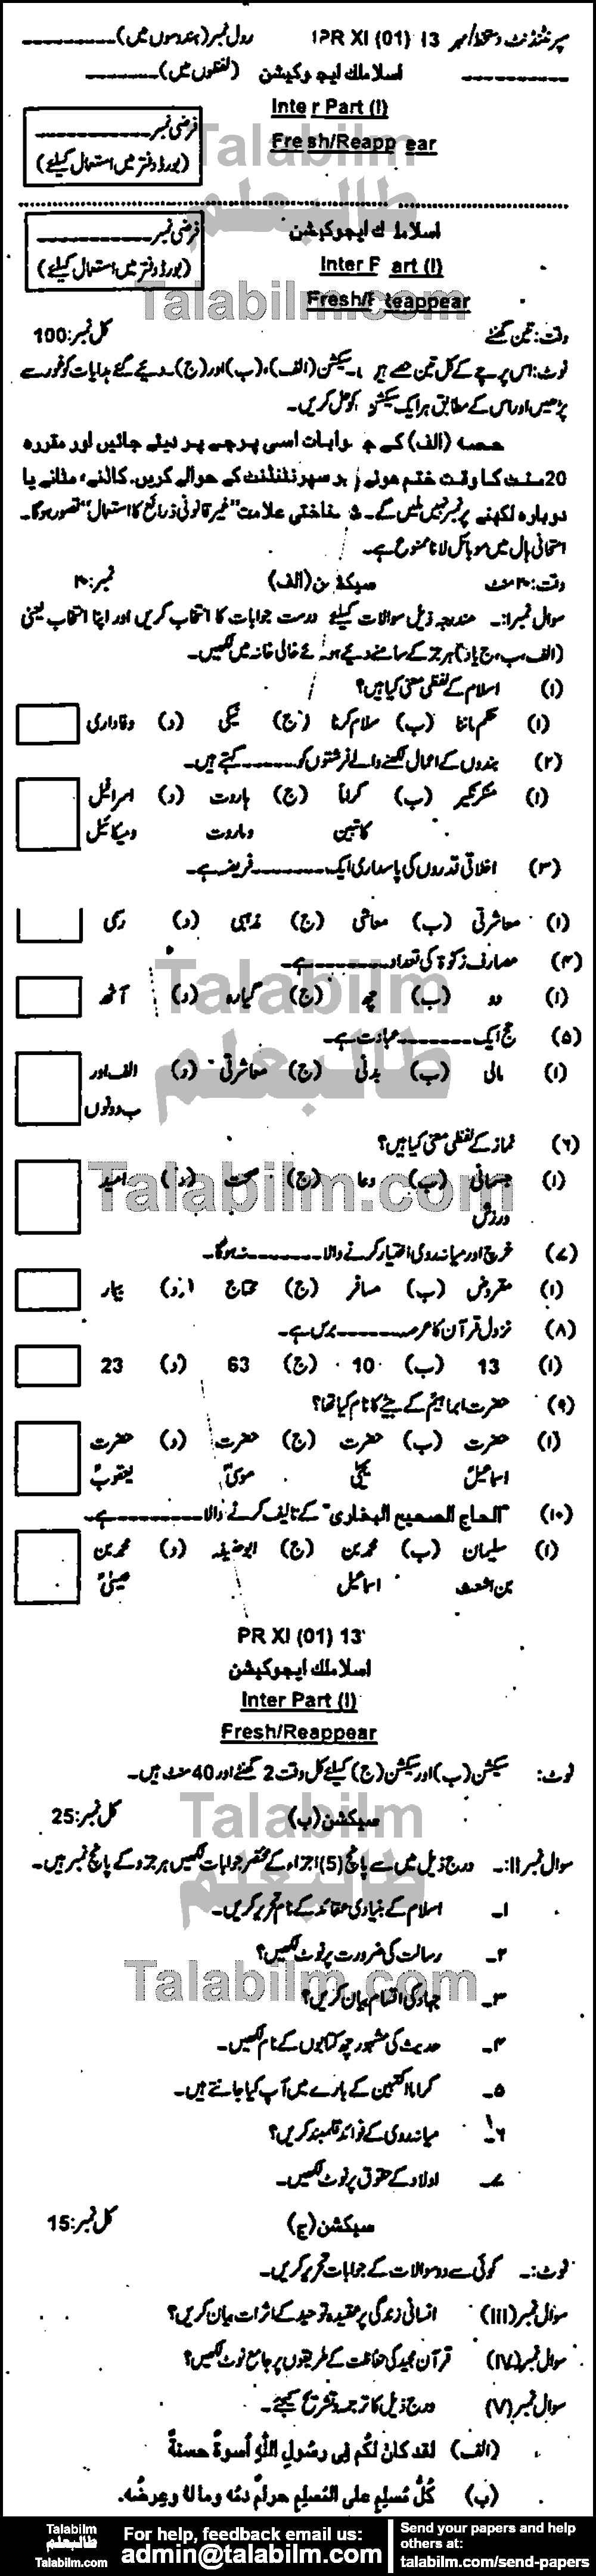 سپرنٹنڈنٹ دستخط/مہر 1PR XI (01) 13 رول نمبر(ہندسوں میں)
اسلامک ایجوکیشن (لفظوں میں)
Inter Part (I)
Fresh/Reappear
فرضی نمبر
(بورڈ دفتر میں استعمال کیلئے)
Talabilm
طالبعلم
اسلامک ایجوکیشن
Inter Part (I)
Fresh/Reappear
فرضی نمبر
(بورڈ دفتر میں استعمال کیلئے)
Talabilm.com
وقت: تین گھنٹے کل نمبر:100
نوٹ: اس پرچے کے کل تین حصے ہیں۔ سیکشن (الف)، (ب) اور (ج)۔ دیئے گئے ہدایات کو غور سے
پڑھیں اور اس کے مطابق ہر ایک سیکشن کو حل کریں۔
حصہ (الف) کے جوابات اسی پرچے پر دیئے جائیں اور مقررہ
20 منٹ کا وقت ختم ہوتے ہی سپرنٹنڈنٹ کے حوالے کریں. کاٹنے، مٹانے یا
دوبارہ لکھنے پر نمبر نہیں ملیں گے۔ شناختی علامت "غیر قانونی ذرائع کا استعمال" تصور ہوگا۔
امتحانی ہال میں موبائل لانا ممنوع ہے۔
وقت: ۲۰ منٹ سیکشن (الف) نمبر: ۲۰
سوال نمبر ا:۔ مندرجہ ذیل سوالات کیلئے درست جوابات کا انتخاب کریں اور اپنا انتخاب یعنی
(الف، ب، ج یا د) ہر جز کے سامنے دیئے ہوئے خالی خانہ میں لکھیں۔
(۱) اسلام کے لفظی معنی کیا ہیں؟
(ا) حکم ماننا (ب) سلام کرنا (ج) نیکی (د) وفاداری
(۲) بندوں کے اعمال لکھنے والے فرشتوں کو ـــــــ کہتے ہیں۔
(ا) منکر نکیر (ب) کراماً کاتبین (ج) ہاروت و ماروت (د) اسرافیل و میکائیل
(۳) اخلاقی قدروں کی پاسداری ایک ـــــــ فریضہ ہے۔
(ا) معاشرتی (ب) معاشی (ج) مذہبی (د) رسمی
(۴) مصارف زکوٰۃ کی تعداد ـــــــ ہے۔
(ا) دو (ب) چھ (ج) گیارہ (د) آٹھ
Talabilm
طالبعلم
(۵) حج ایک ـــــــ عبادت ہے۔
(ا) مالی (ب) بدنی (ج) معاشرتی (د) الف اور ب دونوں
(۶) نماز کے لفظی معنی کیا ہیں؟
(ا) جسمانی ورزش (ب) دعا (ج) محبت (د) امید
Talabilm.com
(۷) خرچ اور میانہ روی اختیار کرنے والا ـــــــ نہ ہوگا۔
(ا) مقروض (ب) مسافر (ج) محتاج (د) بیمار
(۸) نزول قرآن کا عرصہ ـــــــ برس ہے۔
(ا) 13 (ب) 10 (ج) 63 (د) 23
(۹) حضرت ابراہیمؑ کے بیٹے کا نام کیا تھا؟
(ا) حضرت اسماعیلؑ (ب) حضرت یحییٰؑ (ج) حضرت موسیٰؑ (د) حضرت یعقوبؑ
(۱۰) "الجامع الصحیح البخاری" کے تالیف کرنے والا ـــــــ ہے۔
(ا) سلیمان بن اشعث (ب) محمد بن اسماعیل (ج) ابو حنیفہ (د) محمد بن عیسیٰؒ
PR XI (01) 13
اسلامک ایجوکیشن
Inter Part (I)
Fresh/Reappear
نوٹ: سیکشن (ب) اور سیکشن (ج) کیلئے کل وقت 2 گھنٹے اور 40 منٹ ہیں۔
Talabilm
طالبعلم
سیکشن (ب) کل نمبر:25
سوال نمبر II:۔ درج ذیل میں سے پانچ (5) اجزاء کے مختصر جوابات لکھیں ہر جزو کے پانچ نمبر ہیں۔
۱۔ اسلام کے بنیادی عقائد کے نام تحریر کریں۔
۲۔ رسالت کی ضرورت پر نوٹ لکھیں؟
Talabilm.com
۳۔ جہاد کی اقسام بیان کریں؟
۴۔ حدیث کی مشہور چھ کتابوں کے نام لکھیں۔
۵۔ کراماً کاتبین کے بارے میں آپ کیا جانتے ہیں۔
۶۔ میانہ روی کے فوائد قلمبند کریں؟
۷۔ اولاد کے حقوق پر نوٹ لکھیں۔
سیکشن (ج) کل نمبر:15
نوٹ:۔ کوئی سے دو سوالات کے جوابات تحریر کریں۔
سوال نمبر (III) انسانی زندگی پر عقیدہ توحید کے اثرات بیان کریں؟
سوال نمبر (IV) قرآن مجید کی حفاظت کے طریقوں پر جامع نوٹ لکھیں؟
سوال نمبر (V) درج ذیل کا ترجمہ و تشریح کیجئے۔
(الف) لقد كان لكم فى رسول اللهِ أسوةٌ حسنةٌ
(ب) كُلُّ مُسلِمٍ على المُسلِمِ حرامٌ دمُه ومالُهٗ وعِرضُه.
Talabilm
طالبعلم
Talabilm.com
For help, feedback email us:
admin@talabilm.com
Send your papers and help
others at:
talabilm.com/send-papers